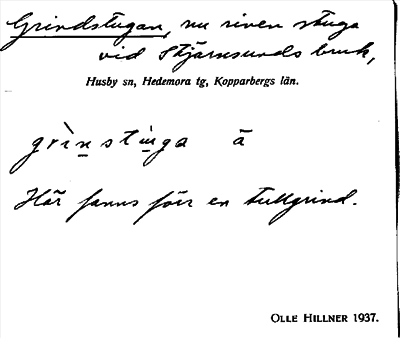 Grindstugan, nu riven stuga
vid Stjärnsunds bruk,
Husby sn, Hedemora tg, Kopparbergs län.
grìn̲stu̲ga ā
Här fanns förr en tullgrind.
OLLE HILLNER 1937.